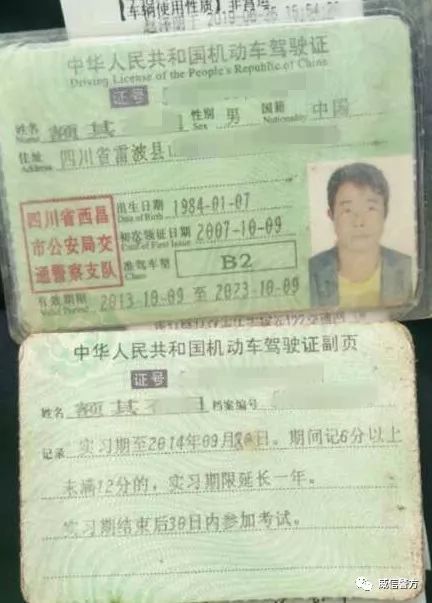 【车辆使用性质】非营运
中华人民共和国机动车驾驶证
Driving License of the People's Republic of China
证号
姓名 Name 额其 性别 Sex 男 国籍 Nationality 中国
住址 Address 四川省雷波县
四川省西昌
市公安局交
通警察支队
出生日期 Date of Birth 1984-01-07
初次领证日期 Date of First Issue 2007-10-09
准驾车型 Class B2
有效期限 Valid Period 2013-10-09 至 2023-10-09
中华人民共和国机动车驾驶证副页
证号
姓名 额其 档案编号
记录 实习期至2014年09月日。期间记6分以上
未满12分的，实习期限延长一年。
实习期结束后30日内参加考试。
威信警方